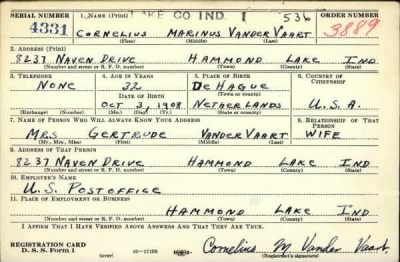 LAKE CO IND. 1 536
SERIAL NUMBER 1. NAME (Print) ORDER NUMBER
4331 CORNELIUS MARINUS VANDER VAART 3889
(First) (Middle) (Last)
2. ADDRESS (Print)
8237 NAVEN DRIVE HAMMOND LAKE IND.
(Number and street or R. F. D. number) (Town) (County) (State)
3. TELEPHONE 4. AGE IN YEARS 5. PLACE OF BIRTH 6. COUNTRY OF CITIZENSHIP
NONE 32 DE HAGUE
DATE OF BIRTH (Town or county)
OCT 3, 1908 NETHERLANDS U.S.A.
(Exchange) (Number) (Mo.) (Day) (Yr.) (State or country)
7. NAME OF PERSON WHO WILL ALWAYS KNOW YOUR ADDRESS 8. RELATIONSHIP OF THAT PERSON
MRS GERTRUDE VANDER VAART WIFE
(Mr., Mrs., Miss) (First) (Middle) (Last)
9. ADDRESS OF THAT PERSON
8237 NAVEN DRIVE HAMMOND LAKE IND
(Number and street or R. F. D. number) (Town) (County) (State)
10. EMPLOYER'S NAME
U.S. POST OFFICE
11. PLACE OF EMPLOYMENT OR BUSINESS
HAMMOND LAKE IND
(Number and street or R. F. D. number) (Town) (County) (State)
I AFFIRM THAT I HAVE VERIFIED ABOVE ANSWERS AND THAT THEY ARE TRUE.
REGISTRATION CARD
D. S. S. Form 1 (over) 16—17105 Cornelius M. Vander Vaart
(Registrant's signature)